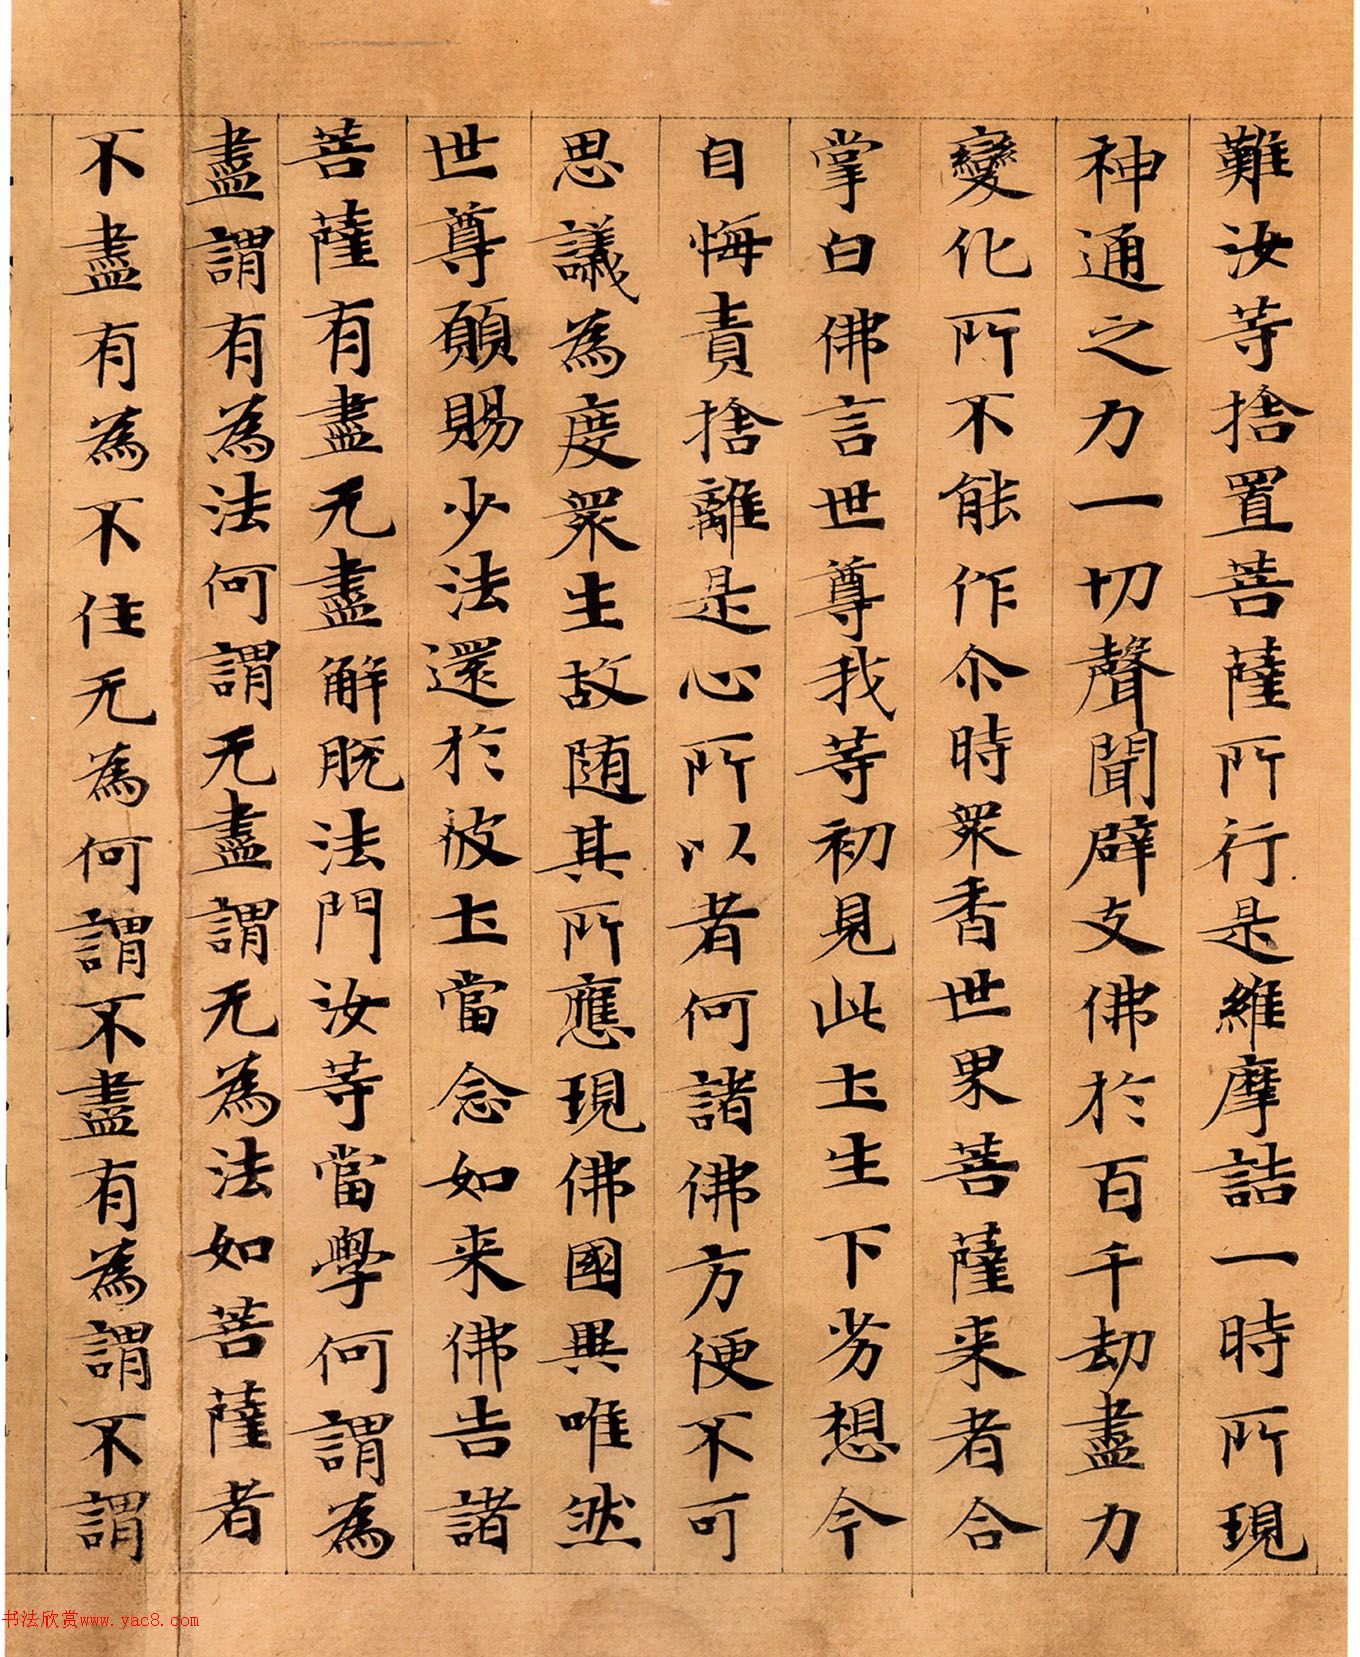 難汝等捨置菩薩所行是維摩詰一時所現
神通之力一切聲聞辟支佛於百千劫盡力
變化所不能作尒時眾香世界菩薩来者合
掌白佛言世尊我等初見此土生下劣想今
自悔責捨離是心所以者何諸佛方便不可
思議為度眾生故随其所應現佛國異唯然
世尊願賜少法還於彼土當念如来佛告諸
菩薩有盡无盡解脱法門汝等當學何謂為
盡謂有為法何謂无盡謂无為法如菩薩者
不盡有為不住无為何謂不盡有為謂不謂
书法欣赏www.yac8.com